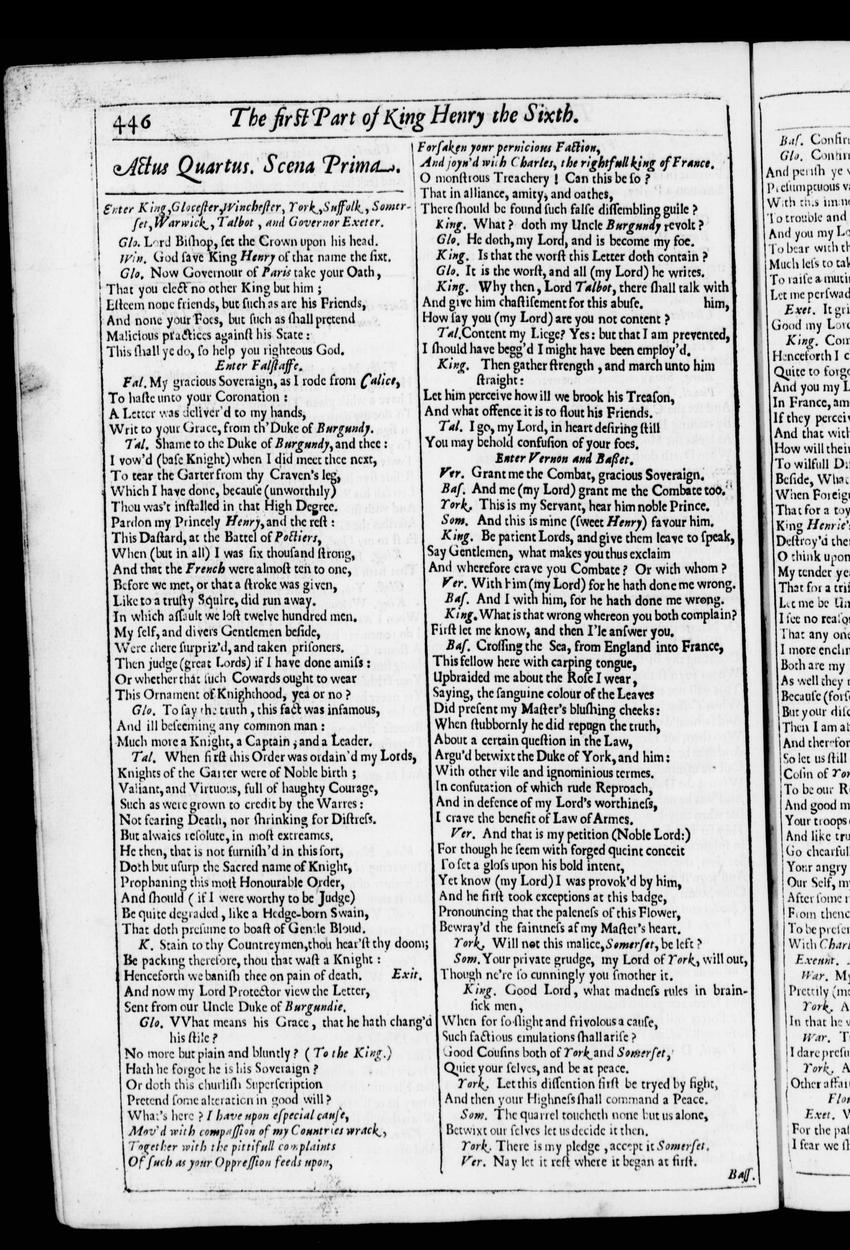 446
The first Part of King Henry the Sixth.
Actus Quartus. Scena Prima.
Enter King, Glocester, Winchester, York, Suffolk, Somer-
set, Warwick, Talbot, and Governor Exeter.
Glo. Lord Bishop, set the Crown upon his head.
Win. God save King Henry of that name the sixt.
Glo. Now Governour of Paris take your Oath,
That you elect no other King but him;
Esteem none friends, but such as are his Friends,
And none your Foes, but such as shall pretend
Malicious practices against his State:
This shall ye do, so help you righteous God.
Enter Falstaffe.
Fal. My gracious Soveraign, as I rode from Calice,
To haste unto your Coronation:
A Letter was deliver'd to my hands,
Writ to your Grace, from th'Duke of Burgundy.
Tal. Shame to the Duke of Burgundy, and thee:
I vow'd (base Knight) when I did meet thee next,
To tear the Garter from thy Craven's leg,
Which I have done, because (unworthily)
Thou was't installed in that High Degree.
Pardon my Princely Henry, and the rest:
This Dastard, at the Battel of Poctiers,
When (but in all) I was six thousand strong,
And that the French were almost ten to one,
Before we met, or that a stroke was given,
Like to a trusty Squire, did run away.
In which assault we lost twelve hundred men.
My self, and divers Gentlemen beside,
Were there surpriz'd, and taken prisoners.
Then judge (great Lords) if I have done amiss:
Or whether that such Cowards ought to wear
This Ornament of Knighthood, yea or no?
Glo. To say the truth, this fact was infamous,
And ill beseeming any common man:
Much more a Knight, a Captain, and a Leader.
Tal. When first this Order was ordain'd my Lords,
Knights of the Garter were of Noble birth;
Valiant, and Virtuous, full of haughty Courage,
Such as were grown to credit by the Warres:
Not fearing Death, nor shrinking for Distress.
But alwaies resolute, in most extreames.
He then, that is not furnish'd in this sort,
Doth but usurp the Sacred name of Knight,
Prophaning this most Honourable Order,
And should (if I were worthy to be Judge)
Be quite degraded, like a Hedge-born Swain,
That doth presume to boast of Gentle Bloud.
K. Stain to thy Countreymen, thou hear'st thy doom;
Be packing therefore, thou that wast a Knight:
Henceforth we banish thee on pain of death. Exit.
And now my Lord Protector view the Letter,
Sent from our Uncle Duke of Burgundie.
Glo. VVhat means his Grace, that he hath chang'd
his stile?
No more but plain and bluntly? (To the King.)
Hath he forgot he is his Soveraign?
Or doth this churlish Superscription
Pretend some alteration in good will?
What's here? I have upon especial cause,
Mov'd with compassion of my Countries wrack,
Together with the pittifull complaints
Of such as your Oppression feeds upon,
Forsaken your pernicious Faction,
And joyn'd with Charles, the rightfull king of France.
O monstrous Treachery! Can this be so?
That in alliance, amity, and oathes,
There should be found such false dissembling guile?
King. What? doth my Uncle Burgundy revolt?
Glo. He doth, my Lord, and is become my foe.
King. Is that the worst this Letter doth contain?
Glo. It is the worst, and all (my Lord) he writes.
King. Why then, Lord Talbot, there shall talk with
And give him chastisement for this abuse. him,
How say you (my Lord) are you not content?
Tal. Content my Liege? Yes: but that I am prevented,
I should have begg'd I might have been employ'd.
King. Then gather strength, and march unto him
straight:
Let him perceive how ill we brook his Treason,
And what offence it is to flout his Friends.
Tal. I go, my Lord, in heart desiring still
You may behold confusion of your foes.
Enter Vernon and Basset.
Ver. Grant me the Combat, gracious Soveraign.
Bas. And me (my Lord) grant me the Combate too.
York. This is my Servant, hear him noble Prince.
Som. And this is mine (sweet Henry) favour him.
King. Be patient Lords, and give them leave to speak,
Say Gentlemen, what makes you thus exclaim
And wherefore crave you Combate? Or with whom?
Ver. With him (my Lord) for he hath done me wrong.
Bas. And I with him, for he hath done me wrong.
King. What is that wrong whereon you both complain?
First let me know, and then I'le answer you.
Bas. Crossing the Sea, from England into France,
This fellow here with carping tongue,
Upbraided me about the Rose I wear,
Saying, the sanguine colour of the Leaves
Did present my Master's blushing cheeks:
When stubbornly he did repugn the truth,
About a certain question in the Law,
Argu'd betwixt the Duke of York, and him:
With other vile and ignominious termes.
In confutation of which rude Reproach,
And in defence of my Lord's worthiness,
I crave the benefit of Law of Armes.
Ver. And that is my petition (Noble Lord:)
For though he seem with forged queint conceit
To set a gloss upon his bold intent,
Yet know (my Lord) I was provok'd by him,
And he first took exceptions at this badge,
Pronouncing that the paleness of this Flower,
Bewray'd the faintness af my Master's heart.
York. Will not this malice, Somerset, be left?
Som. Your private grudge, my Lord of York, will out,
Though ne're so cunningly you smother it.
King. Good Lord, what madness rules in brain-
sick men,
When for so slight and frivolous a cause,
Such factious emulations shall arise?
Good Cousins both of York and Somerset,
Quiet your selves, and be at peace.
York. Let this dissention first be tryed by fight,
And then your Highness shall command a Peace.
Som. The quarrel toucheth none but us alone,
Betwixt our selves let us decide it then.
York. There is my pledge, accept it Somerset.
Ver. Nay let it rest where it began at first.
Bass.
Bas.
Glo.
And perish ye
Presumptuous
With this
To trouble and
And you my Lo
To bear with th
Much less to tak
To raise a muti
Let me perswad
Exet. It gri
Good my Lor
King. Com
Henceforth I c
Quite to forg
And you my L
In France, am
If they percei
And that with
How will their
To wilfull Di
Beside, What
When Foreig
That for a toy
King Henrie's
Destroy'd the
O think upon
My tender ye
That for a trif
Let me be Um
I see no reaso
That any one
I more enclin
Both are my
As well they
Because (fors
But your disc
Then I am a
And therefor
So let us still
Cosin of Yor
To be our Re
And good m
Your troops
And like tru
Go chearful
Your angry
Our Self, m
After some r
From thenc
To be presen
With Charl
Exeunt.
War. My
Prettily (me
York. A
In that he w
War. T
I dare presu
York. A
Other affai
Flo
Exet. W
For the pas
I fear we sh